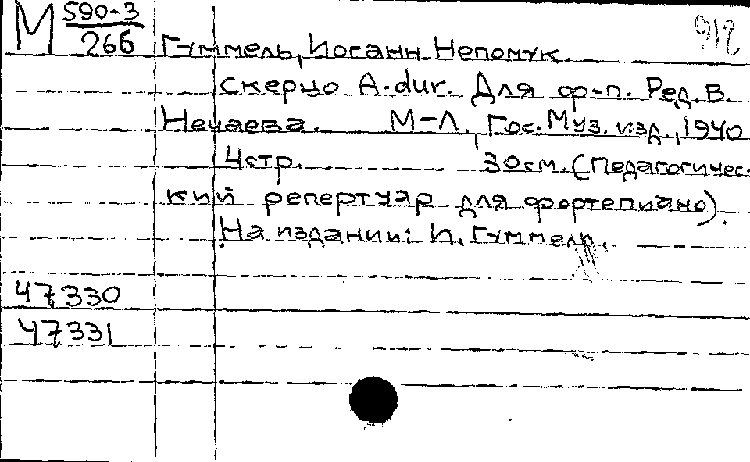 М 590-3 912
266 Гуммель, Иоганн Непомук.
Скерцо A-dur. Для ф-п. Ред. В.
Нечаева. М-Л, Гос. Муз. изд., 1940
4стр. 30см. (Педагогичес-
кий репертуар для фортепиано).
На издании: И. Гуммель.
47330
47331